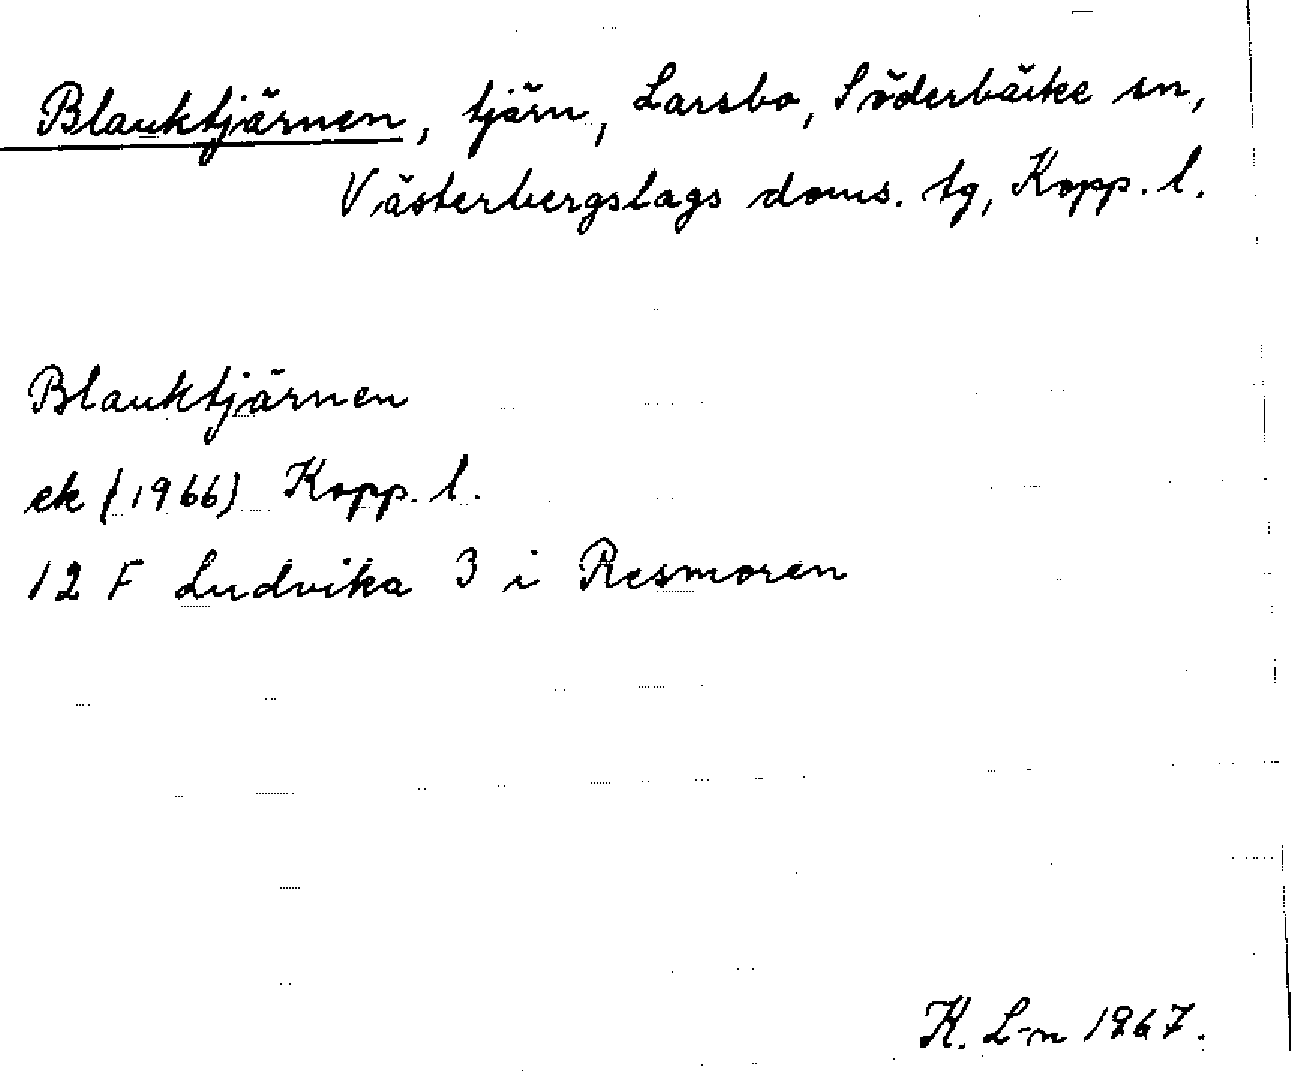 Blanktjärnen, tjärn, Larsbo, Söderbärke sn,
Västerbergslags doms. tg, Kopp. l.
Blanktjärnen
ek (1966) Kopp. l.
12 F Ludvika 3 i Resmoren
K. L-n 1967.